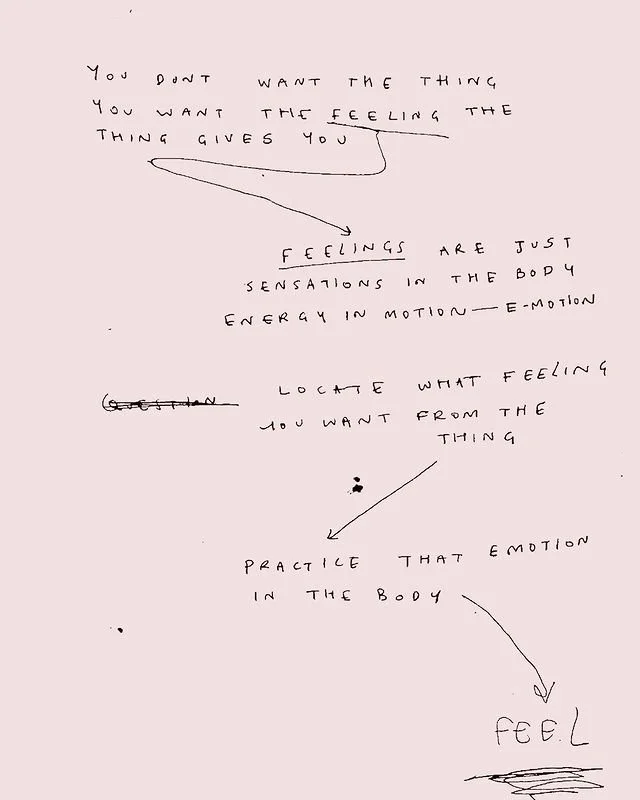 YOU DONT WANT THE THING
YOU WANT THE FEELING THE
THING GIVES YOU
FEELINGS ARE JUST
SENSATIONS IN THE BODY
ENERGY IN MOTION — E-MOTION
QUESTION
LOCATE WHAT FEELING
YOU WANT FROM THE
THING
PRACTICE THAT EMOTION
IN THE BODY
FEEL